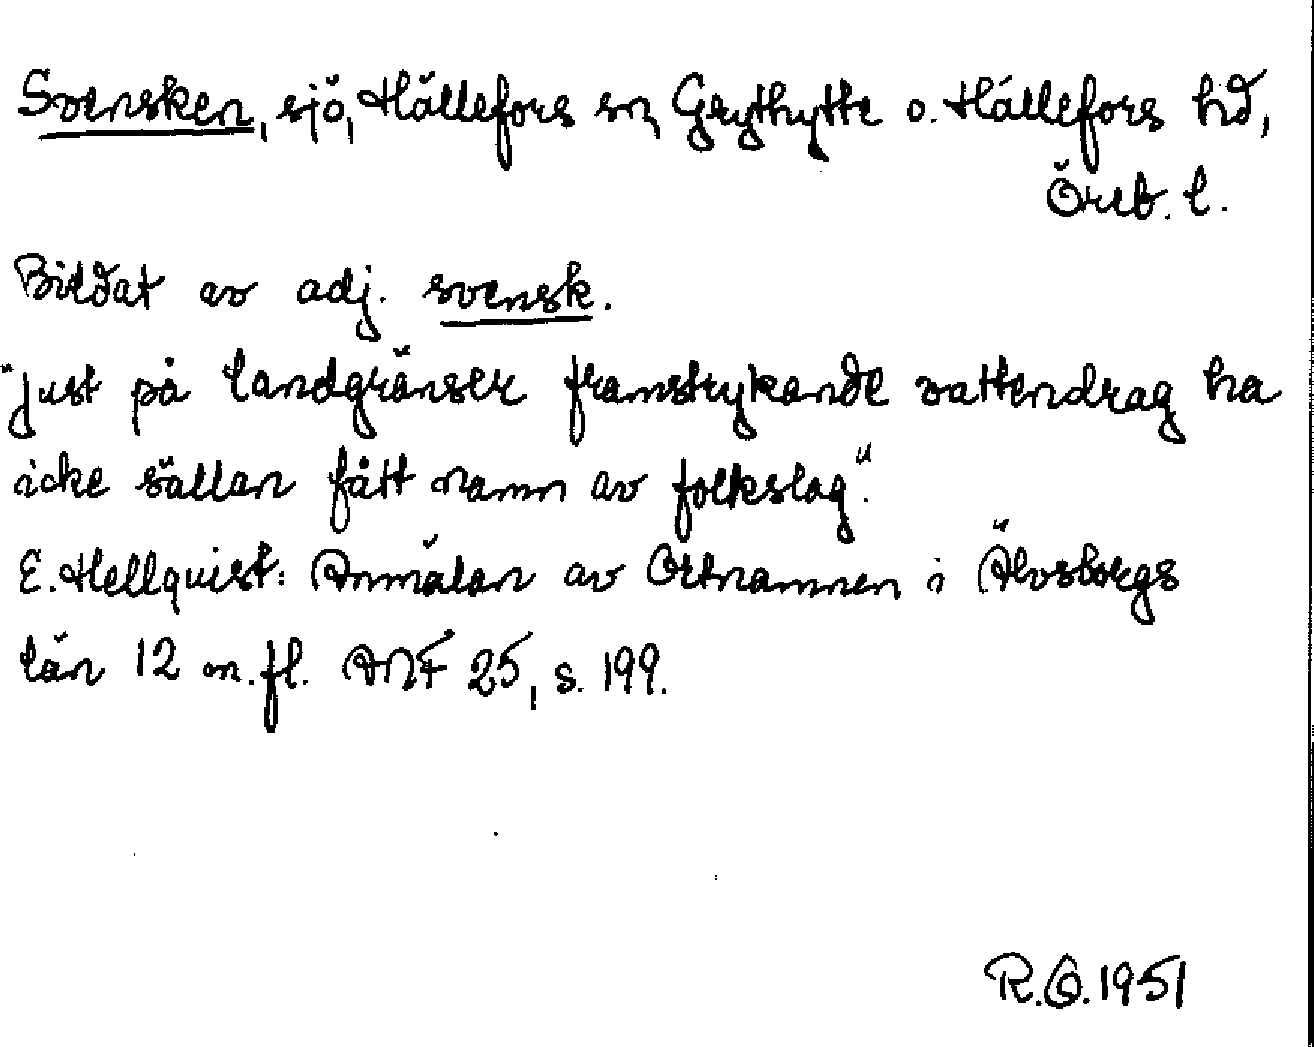 Svensken, sjö, Hällefors sn, Grythytte o. Hällefors hd,
Öreb. l.
Bildat av adj. svensk.
"just på landgränser framstrykande vattendrag ha
icke sällan fått namn av folkslag".
E. Hellquist: Anmälan av Ortnamnen i Älvsborgs
län 12 m.fl. ANF 25, s. 199.
R.O. 1951